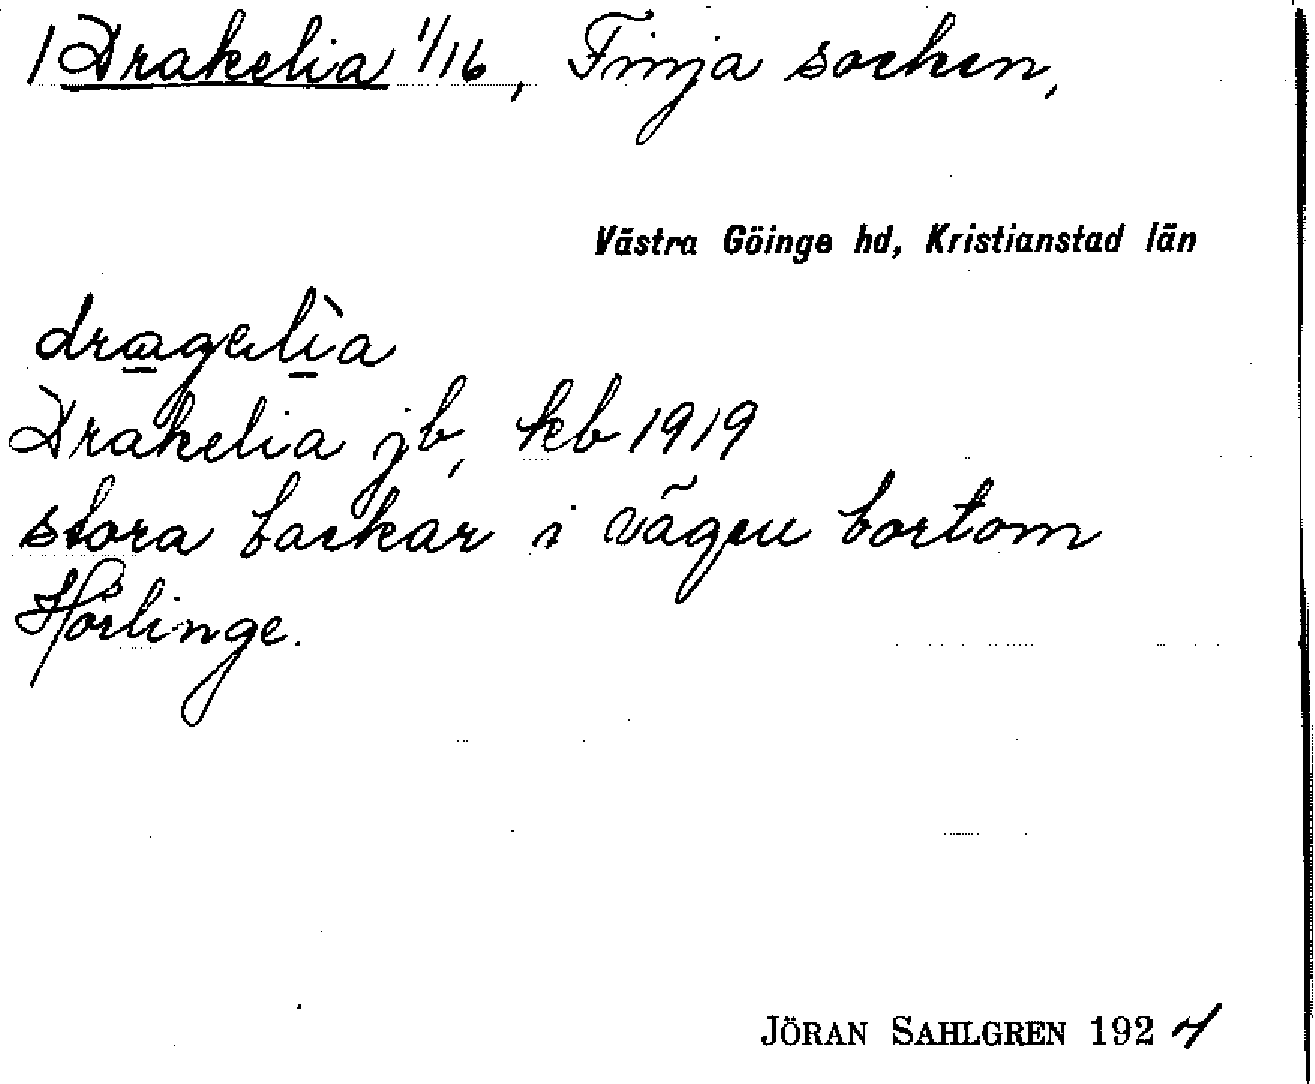 1 Drakelia 1/16, Finja socken,
Västra Göinge hd, Kristianstad län
dragelìa
Drakelia jb, kb 1919
stora backar i vägen bortom
Hörlinge.
JÖRAN SAHLGREN 1924